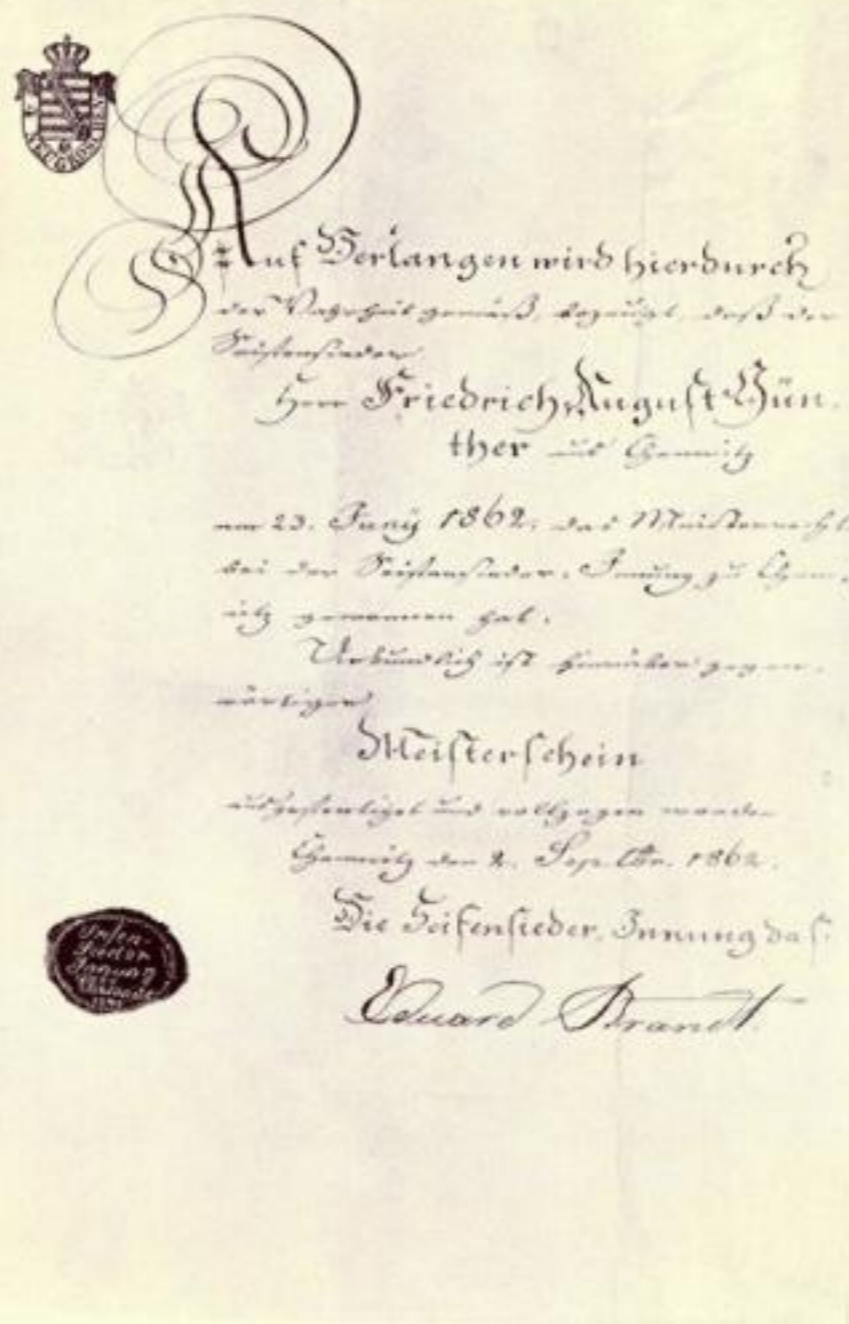 NEUGROSCHEN
Auf Verlangen wird hierdurch
der Wahrheit gemäß, bezeugt, daß der
Seifensieder
Herr Friedrich August Gün-
ther aus Chemnitz
am 23. Juny 1862. das Meisterrecht
bei der Seifensieder-Innung zu Chem-
nitz gewonnen hat.
Urkundlich ist hierüber gegen-
wärtiger
Meisterschein
ausgefertigt und vollzogen worden
Chemnitz den 2. Septbr. 1862.
Die Seifensieder-Innung das.
Eduard Brandt.
Innung